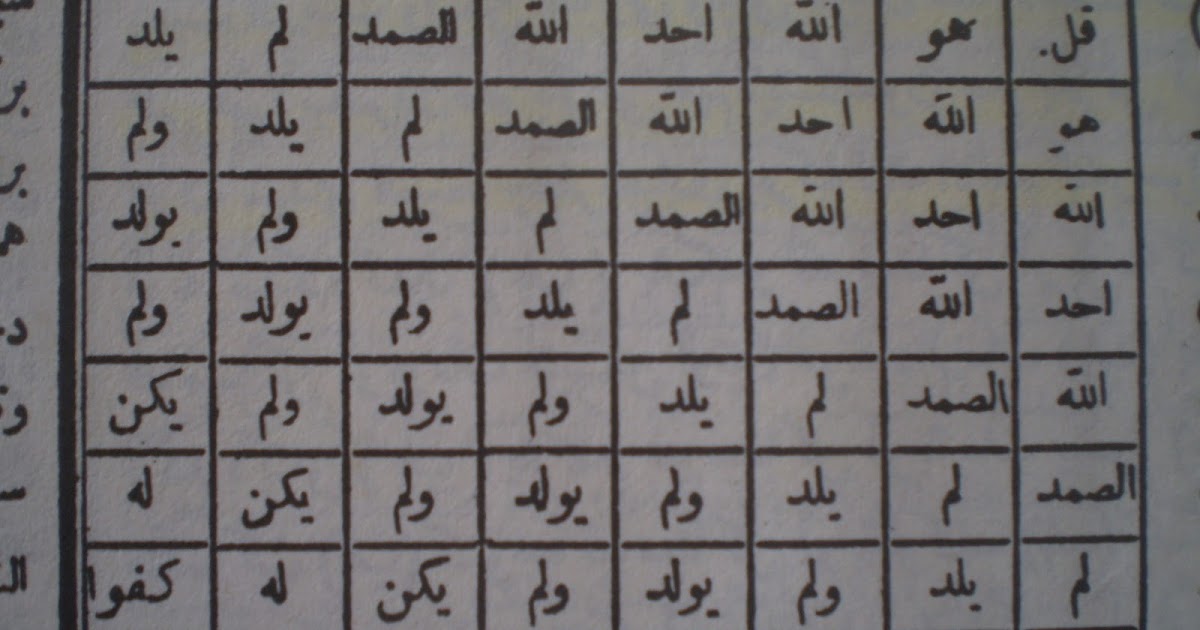 قل هو الله احد الله الصمد لم يلد
هو الله احد الله الصمد لم يلد ولم
الله احد الله الصمد لم يلد ولم يولد
احد الله الصمد لم يلد ولم يولد ولم
الله الصمد لم يلد ولم يولد ولم يكن
الصمد لم يلد ولم يولد ولم يكن له
لم يلد ولم يولد ولم يكن له كفوا